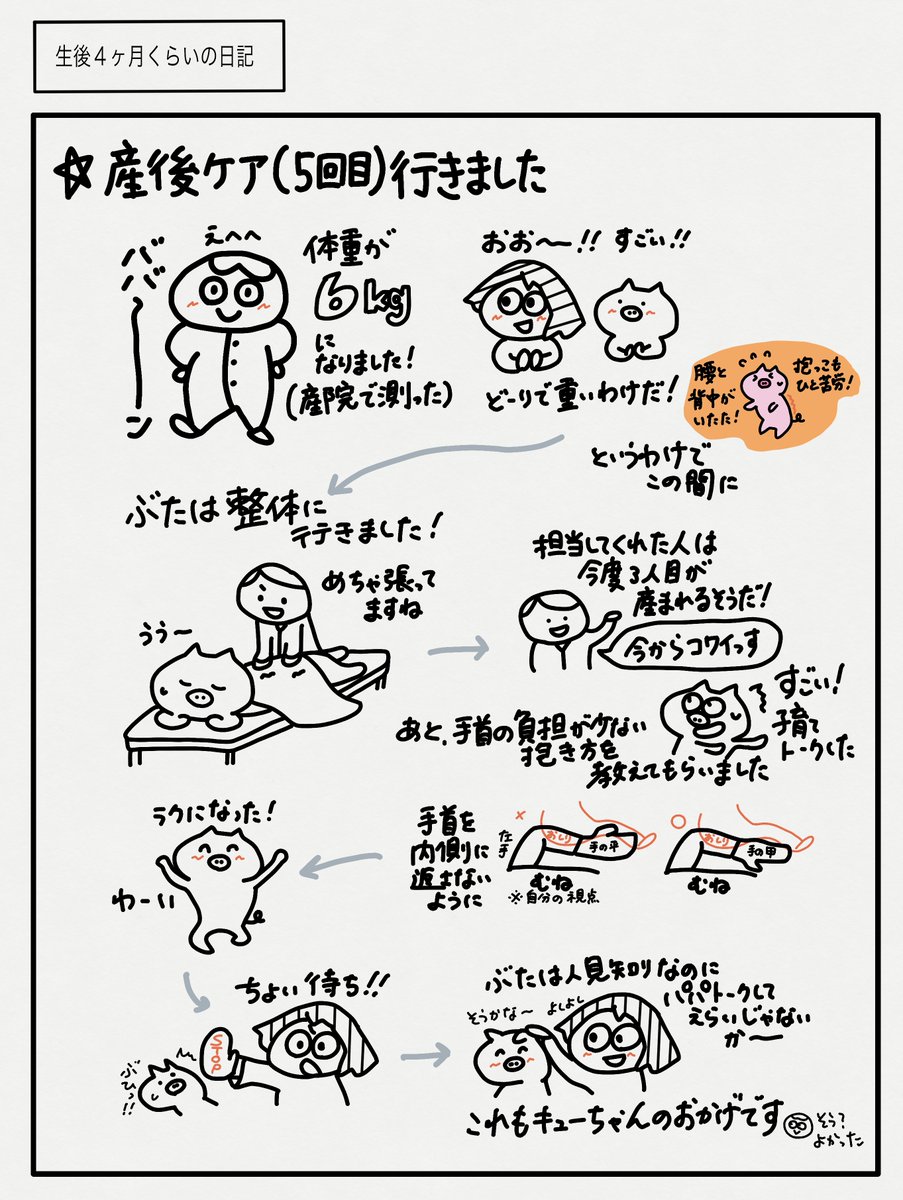 生後4ヶ月くらいの日記
☆産後ケア(5回目)行きました
ババーン
えへへ
体重が
6kg
に
なりました!
(産院で測った)
おお〜!! すごい!!
どーりで重いわけだ!
腰と
背中が
いたた!
抱っこも
ひと苦労!
というわけで
この間に
ぶたは整体に
行きました!
めちゃ張って
ますね
うう〜
担当してくれた人は
今度3人目が
産まれるそうだ!
今からコワイっす
すごい!
子育て
トークした
あと、手首の負担が少ない
抱き方を
教えてもらいました
手首を
内側に
返さない
ように
×
左手
おしり
手の平
むね
※自分の視点
○
おしり
手の甲
むね
ラクになった!
わーい
ちょい待ち!!
STOP
ぶひっ!!
ぶたは人見知りなのに
パパトークして
えらいじゃない
か〜
そうかな〜
よしよし
これもキューちゃんのおかげです
そう?
よかった